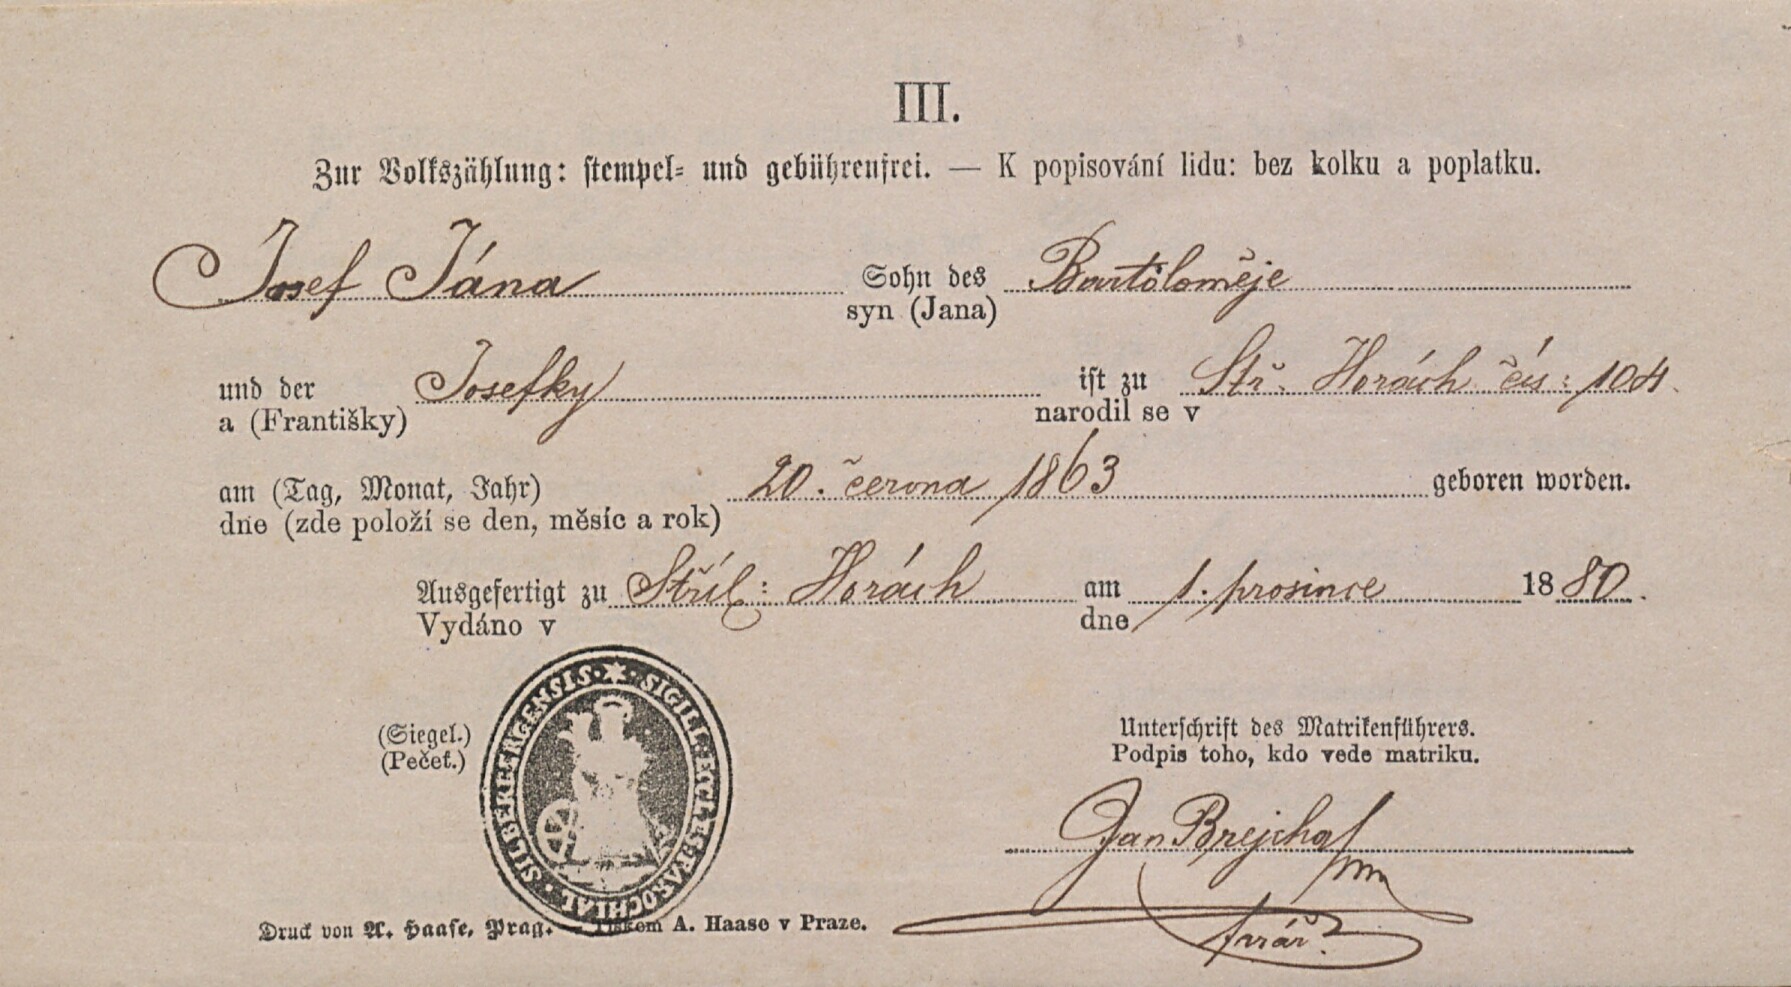 III.
Zur Volkszählung: stempel- und gebührenfrei. — K popisování lidu: bez kolku a poplatku.
Josef Jána Sohn des Bartoloměje
syn (Jana)
und der Josefky ist zu Stř. Horách čís: 104.
a (Františky) narodil se v
am (Tag, Monat, Jahr) 20. června 1863 geboren worden.
dne (zde položí se den, měsíc a rok)
Ausgefertigt zu Stříb: Horách am 1. prosince 1880.
Vydáno v dne
SIGILL. ECCLES. PAROCHIAL. SILBERBERGENSIS.
(Siegel.) Unterschrift des Matrikenführers.
(Pečeť.) Podpis toho, kdo vede matriku.
Jan Brejcha
farář.
Druck von A. Haase, Prag. — Tiskem A. Haase v Praze.